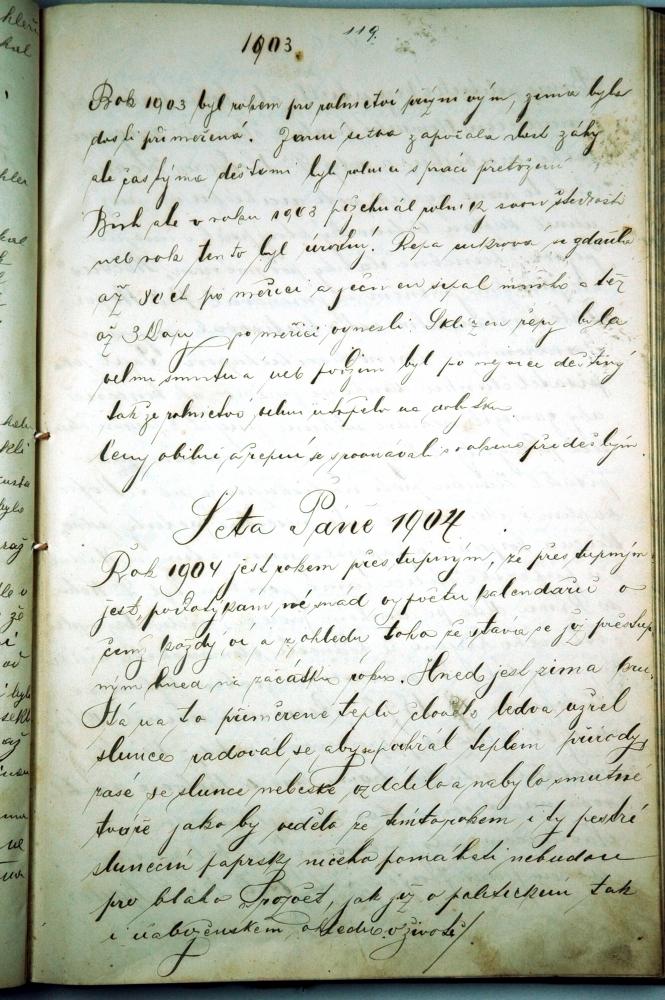 119.
1903
Rok 1903 byl rokem pro rolnictví příznivým, zima byla
dosti přiměřená. Jarní setba započala dosti záhy
ale častýma děšťami byli rolníci s prací přetrženi
Bůh ale v roku 1903 požehnál rolník svou štědrosti
neb rok tento byl úrodný. Řepa cukrova se zdařila
až 80 ct po měřici a ječmen sypal mnoho a též
až 3 kopy po měřici vynesli Sklizen řepy byla
velmi smutná neb podzim byl po nejvice deštivý
tak že rolnictvo velmi utrpělo na dobytku
Ceny obilní a řepní se srovnávali s rokem předešlým.
Leta Páně 1904
Rok 1904 jest rokem přestupným, že přestupným
jest, povótykam né snád výpočtu kalendářů o
čemž každý ví a z ohledu toho že stává se již přestup
ným hned na začátku roku. Hned jest zima kru-
tá na to přiměřené teplo člověk ledva uzřel
slunce radovál se aby pookřál teplem přírody
zasé se slunce nebeské vzdálilo a nabylo smutné
tváře jako by vědělo že tímto rokem i ty pestré
sluneční paprsky ničeho pomáhati nebudou
pro blaho života, jak již v politickém tak
i náboženském ohledu v životě/